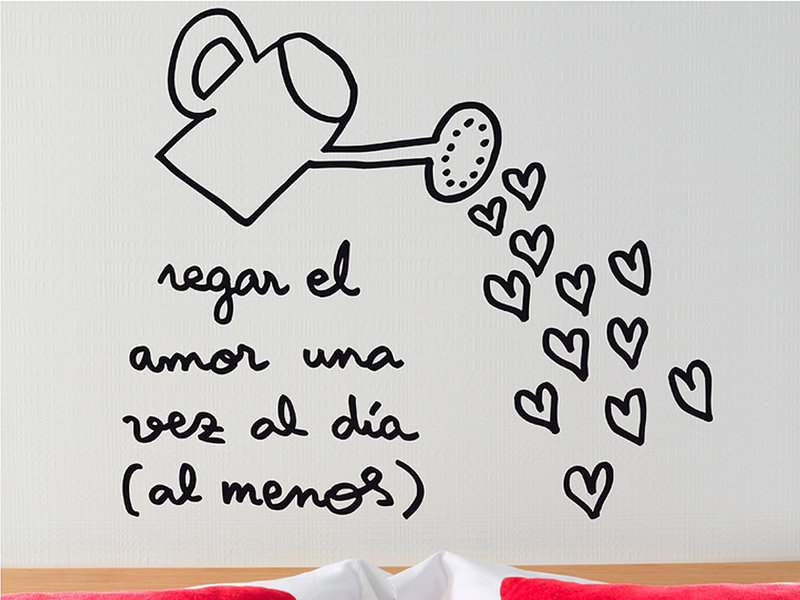 regar el
amor una
vez al día
(al menos)